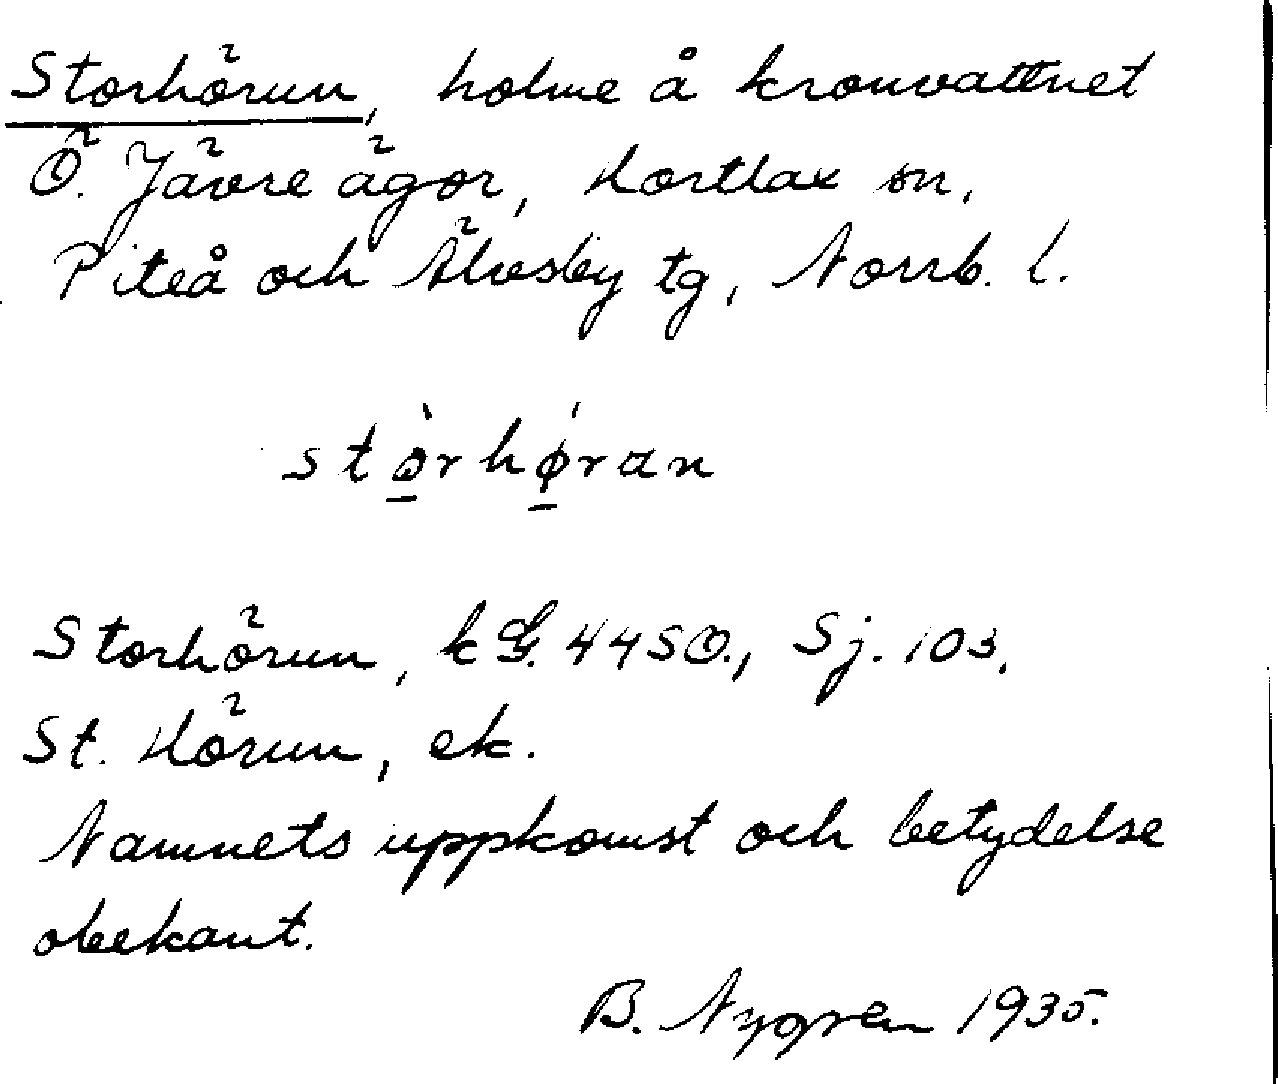 Storhörun, holme å kronvattnet
Ö. Jävre ägor, Hortlax sn,
Piteå och Älvsby tg, Norrb. l.
stø̀rhǿran
Storhörun, kG. 44SO., Sj. 103.
St. Hörun, ek.
Namnets uppkomst och betydelse
obekant.
B. Nygren 1935.